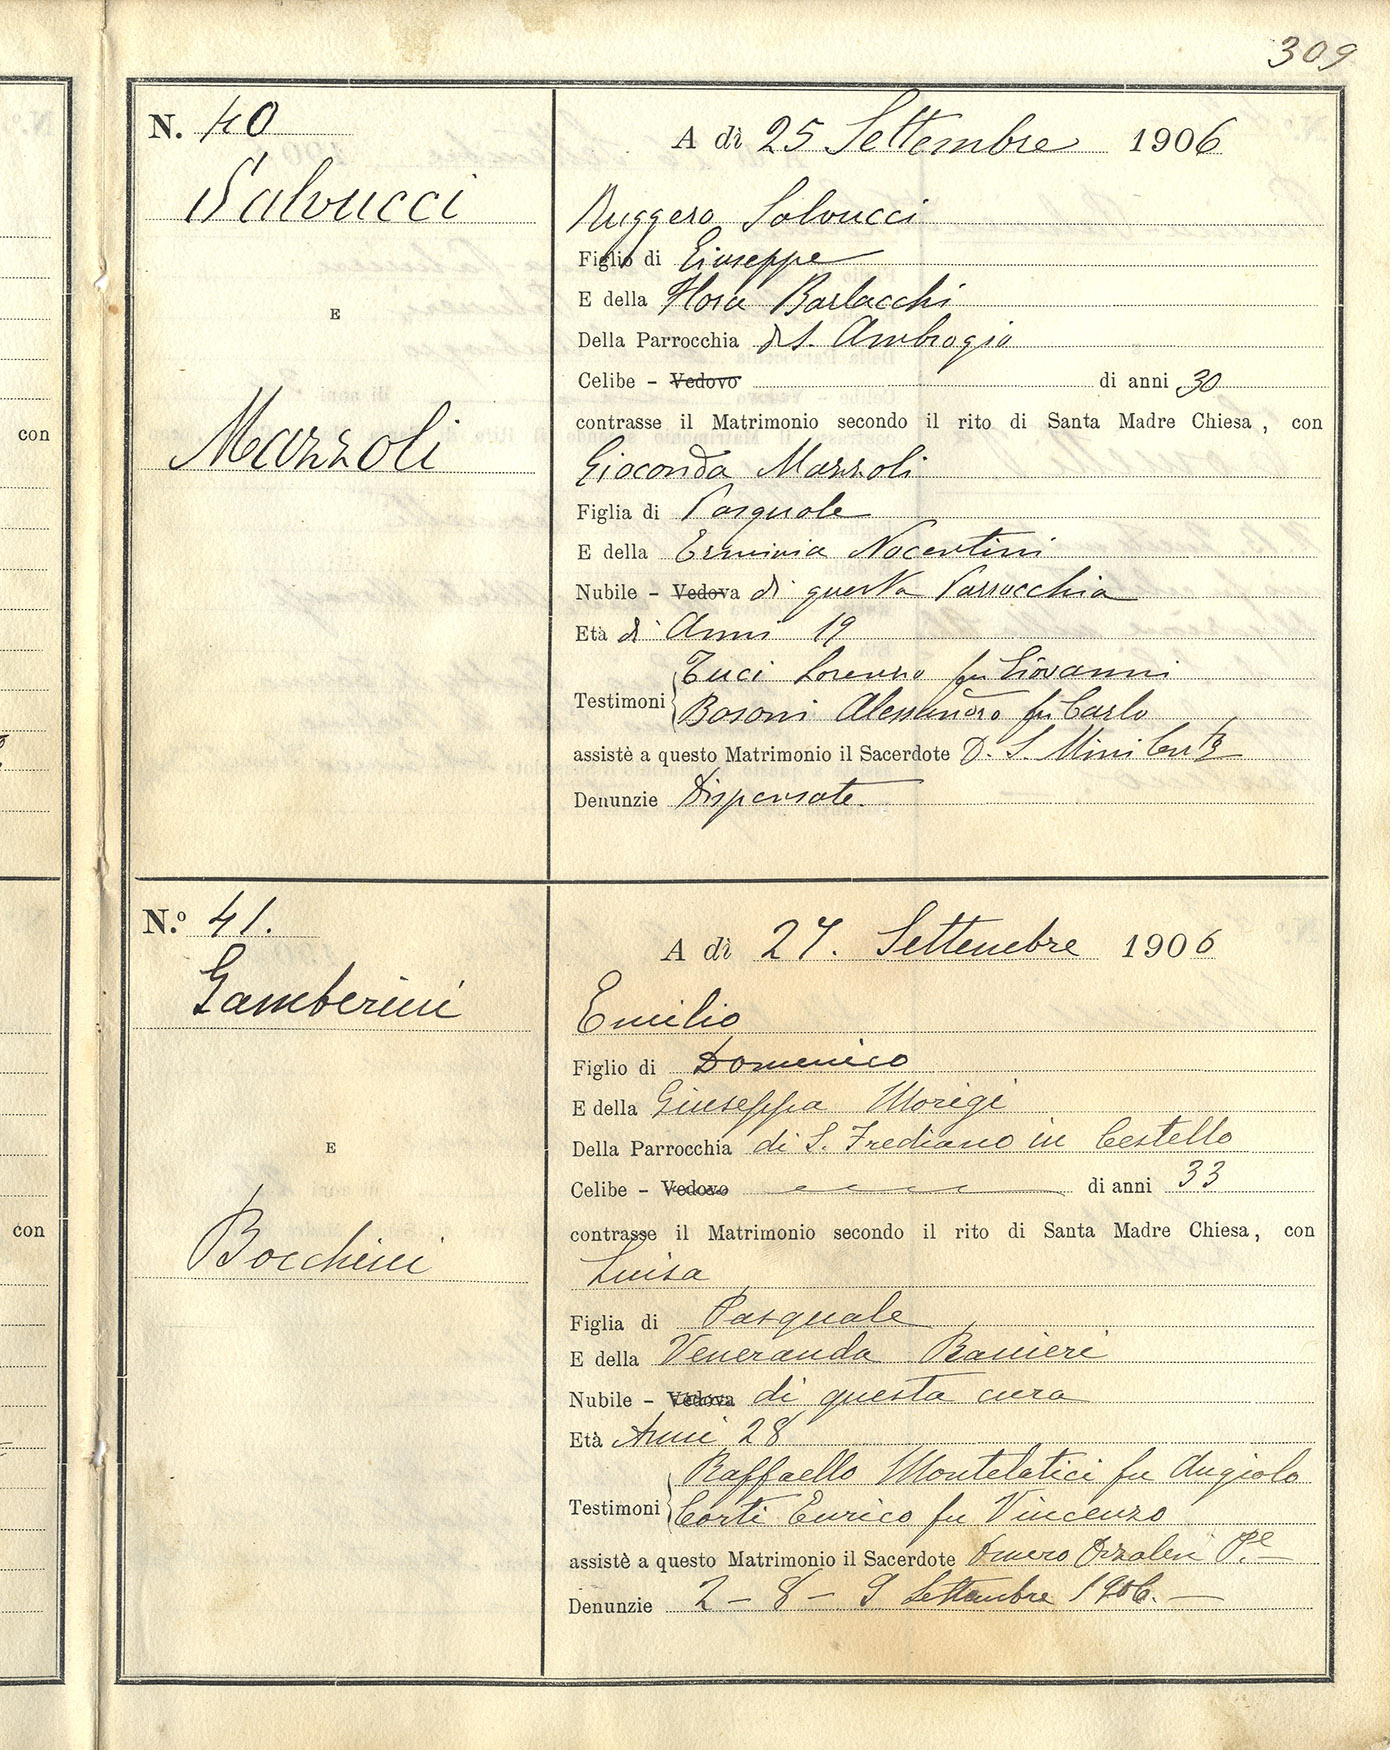 309
N. 40
Salvucci
E
Mazzoli
A dì 25 Settembre 1906
Ruggero Salvucci
Figlio di Giuseppe
E della Flora Barlacchi
Della Parrocchia di S. Ambrogio
Celibe - Vedovo di anni 30
contrasse il Matrimonio secondo il rito di Santa Madre Chiesa, con
Gioconda Mazzoli
Figlia di Pasquale
E della Erminia Nocentini
Nubile - Vedova di questa Parrocchia
Età di Anni 19
Testimoni
Tuci Lorenzo fu Giovanni
Bosoni Alessandro fu Carlo
assistè a questo Matrimonio il Sacerdote D. S. Mini
Denunzie Dispensate.
N.º 41.
Gamberini
E
Bocchini
A dì 27. Settembre 1906
Emilio
Figlio di Domenico
E della Giuseppa Morigi
Della Parrocchia di S. Frediano in Cestello
Celibe - Vedovo di anni 33
contrasse il Matrimonio secondo il rito di Santa Madre Chiesa, con
Luisa
Figlia di Pasquale
E della Veneranda Banieri
Nubile - Vedova di questa cura
Età Anni 28
Testimoni
Raffaello Montelatici fu Angiolo
Corti Enrico fu Vincenzo
assistè a questo Matrimonio il Sacerdote
Denunzie 2 - 8 - 9 Settembre 1906. -
con
con